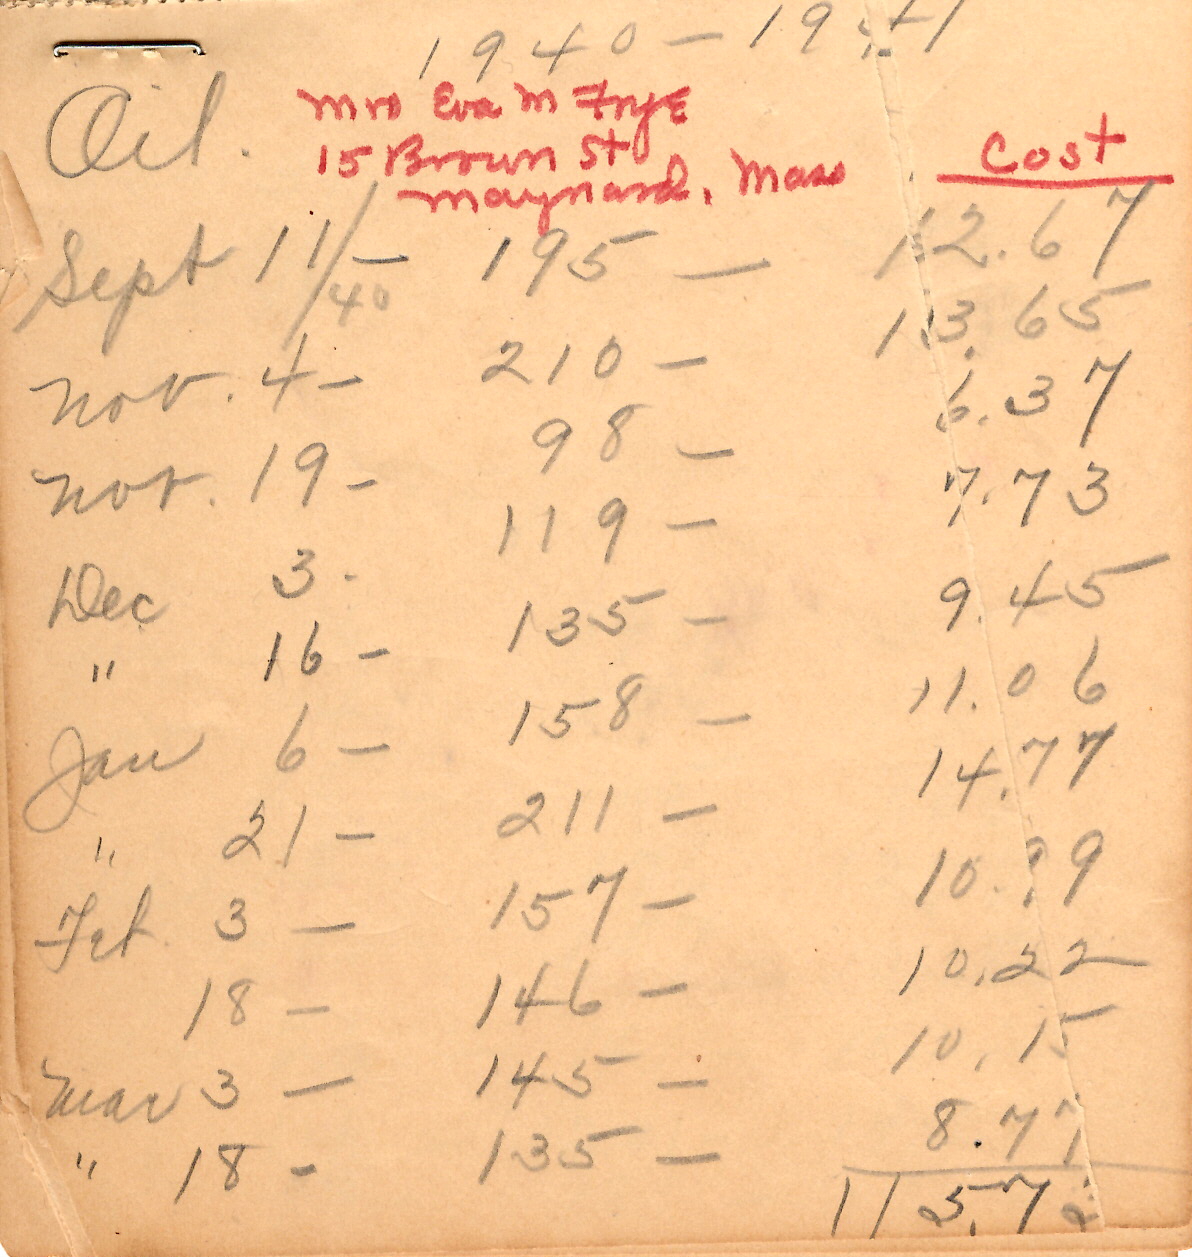 1940 – 1941
Oil.
Mrs Eva M Frye
15 Brown St
Maynard, Mass
Cost
Sept 11/40 – 195 — 12.67
Nov. 4 – 210 – 13.65
Nov. 19 – 98 – 6.37
Dec 3. 119 – 7.73
" 16 – 135 – 9.45
Jan 6 – 158 – 11.06
" 21 – 211 – 14.77
Feb. 3 — 157 – 10.99
18 – 146 – 10.22
Mar 3 — 145 – 10.15
" 18 - 135 — 8.77
115.72